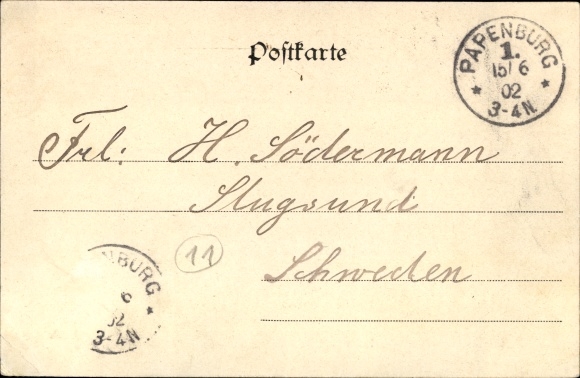 Postkarte
PAPENBURG
1.
15/6
02
* 3-4N. *
Frl: H. Södermann
Stugsund
Schweden
11
BURG
6
02
3-4N *